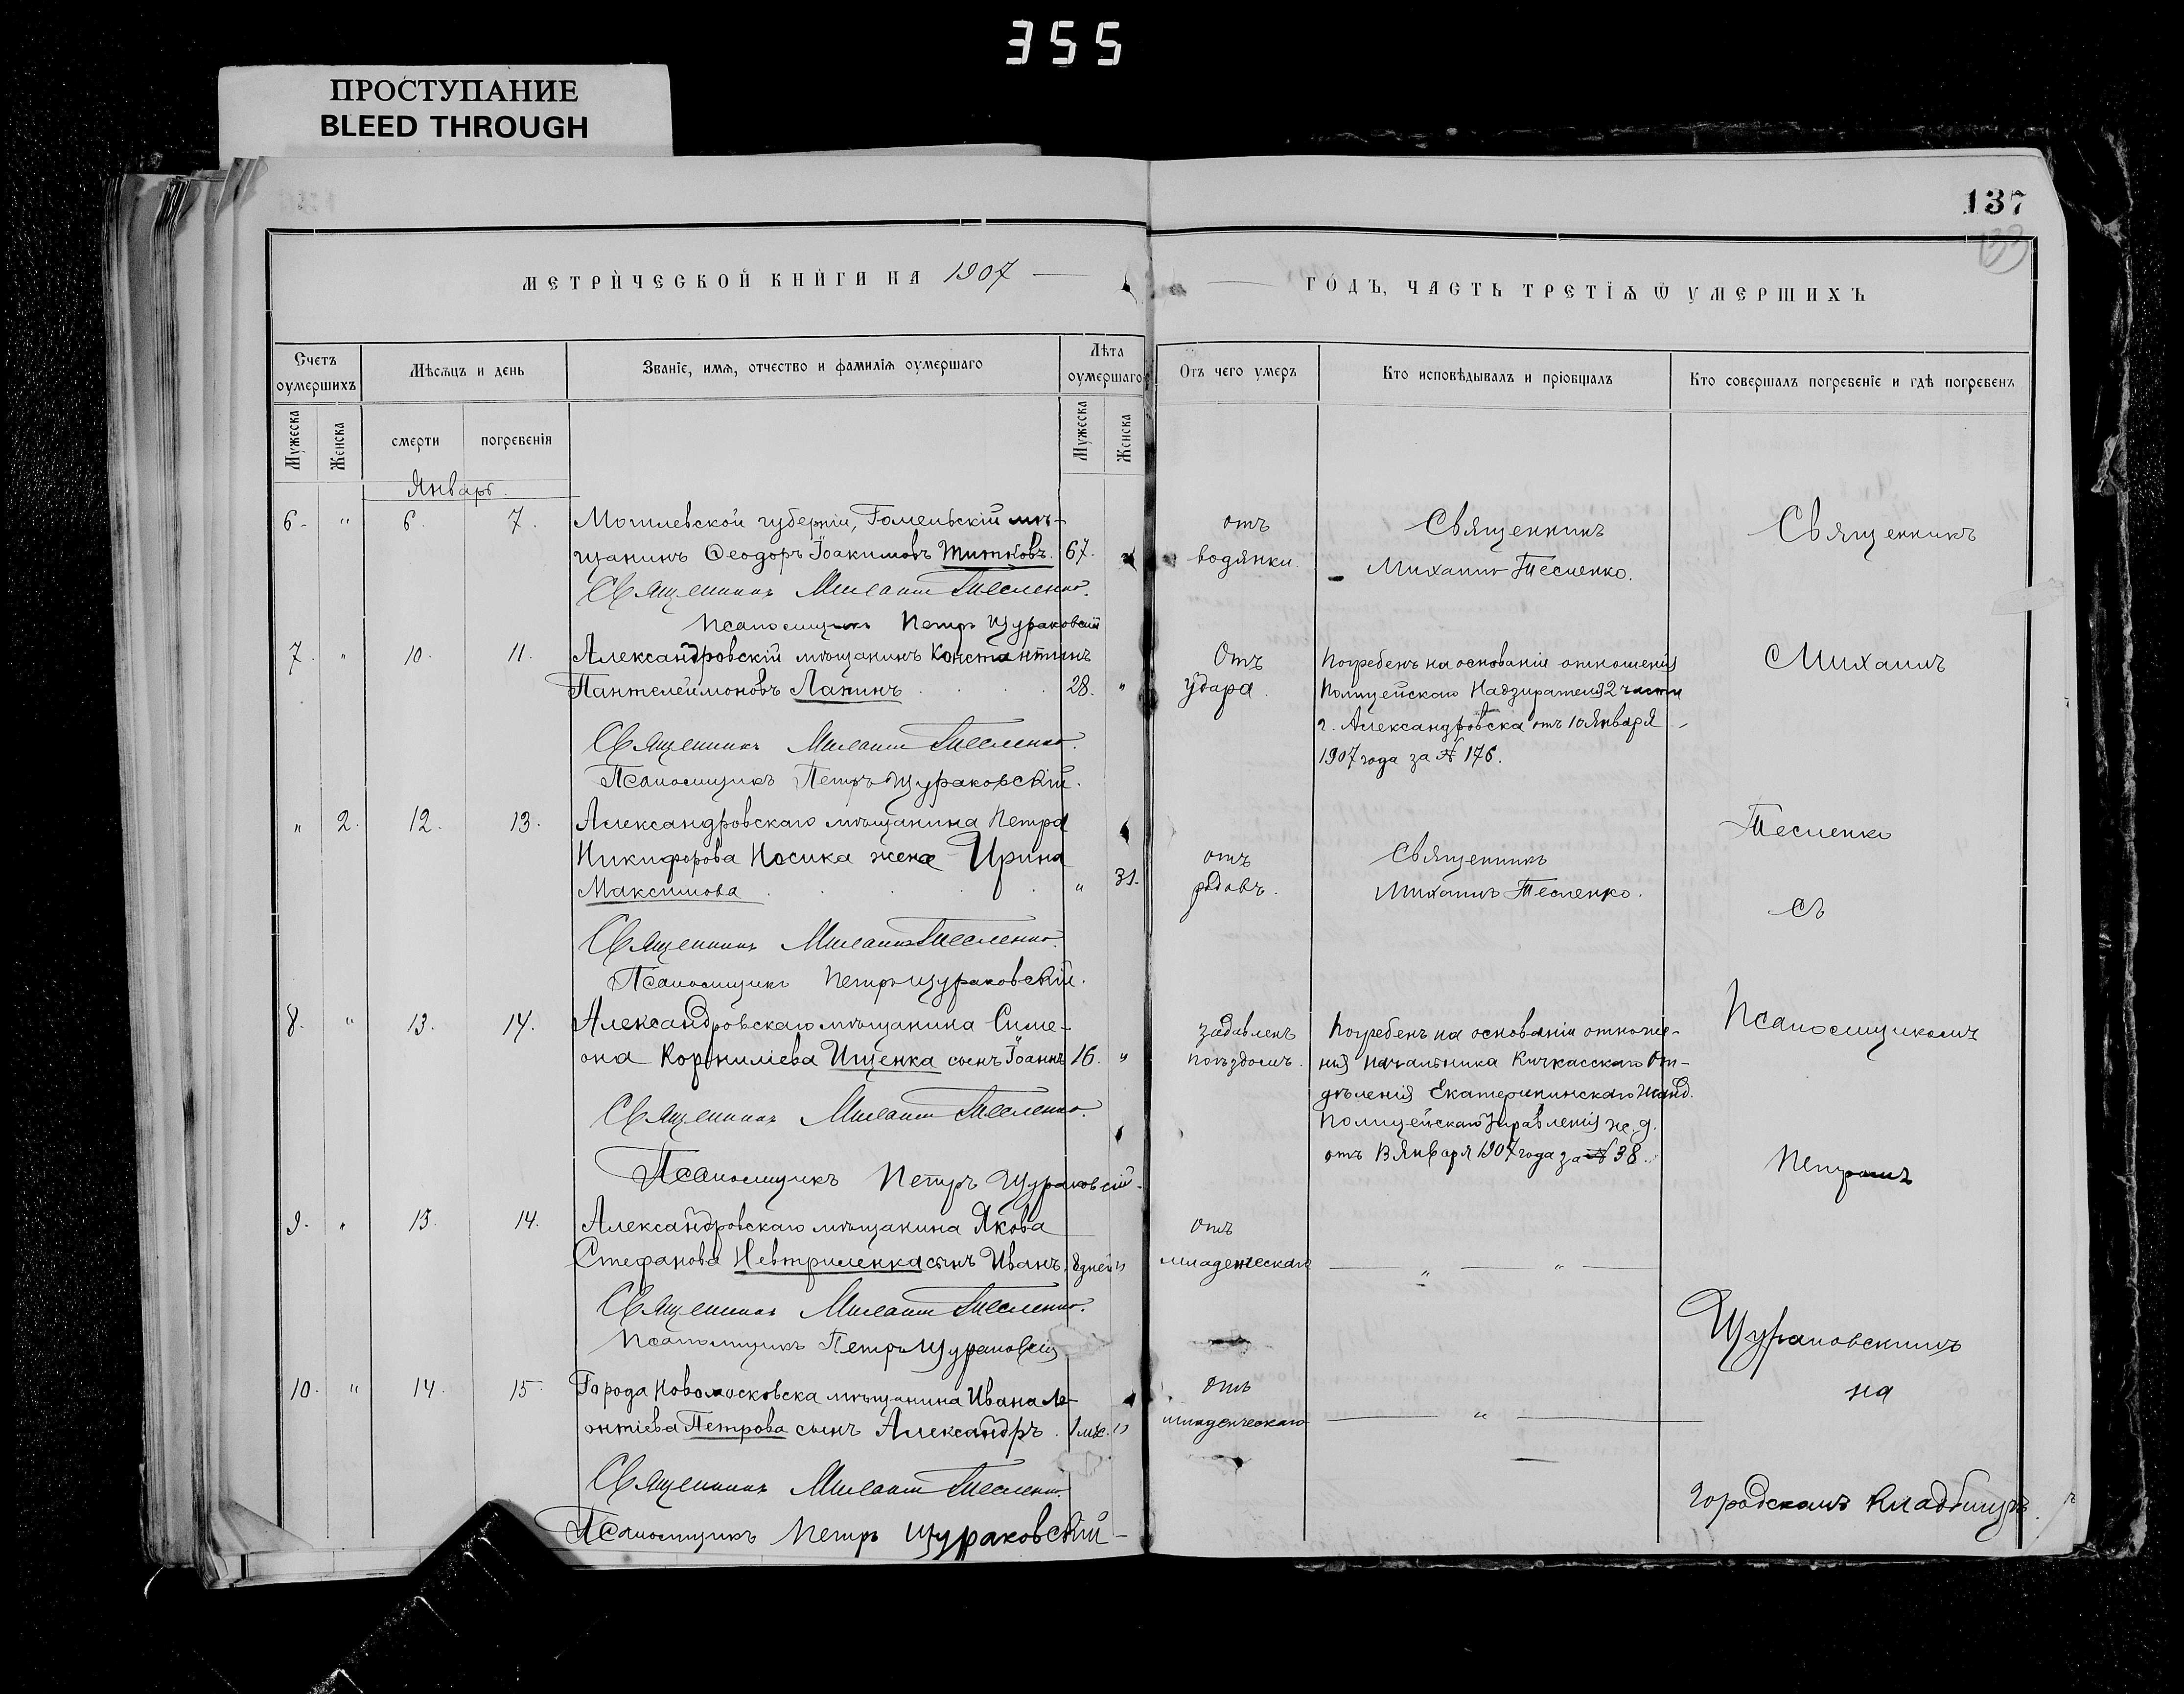 355
ПРОСТУПАНИЕ
BLEED THROUGH
137
МЕТРИ́ЧЕСКОЙ КНИ́ГИ НА 1907
ГО́ДЪ, ЧАСТЬ ТРЕТІѦ Ѿ УМЕРШИХЪ
Счетъ оумершихъ
Мѣсѧцъ и день
Званіе, имѧ, отчество и фамиліѧ оумершаго
Лѣта оумершаго
Отъ чего умеръ
Кто исповѣдывалъ и пріобщалъ
Кто совершалъ погребеніе и гдѣ погребенъ
Мужеска
Женска
смерти
погребенія
Мужеска
Женска
Январь.
6. " 6. 7. Могилевской губерніи, Гомельскій мѣ-
щанинъ Ѳеодоръ Іоакимовъ Титковъ. 67.
Священникъ Михаилъ Тесленко.
Псаломщикъ Петръ Щураковскій
отъ
водянки.
Священникъ
Михаилъ Тесленко.
7. " 10. 11. Александровскій мѣщанинъ Константинъ
Пантелеймоновъ Лапинъ 28. "
Священникъ Михаилъ Тесленко.
Псаломщикъ Петръ Щураковскій.
Отъ
удара.
Погребенъ на основаніи отношенія
Полицейскаго Надзирателя 2 части
г. Александровска отъ 10 Января
1907 года за № 176.
" 2. 12. 13. Александровскаго мѣщанина Петра
Никифорова Носика жена Ирина
Максимова " 31.
Священникъ Михаилъ Тесленко.
Псаломщикъ Петръ Щураковскій.
отъ
родовъ.
Священникъ
Михаилъ Тесленко.
8. " 13. 14. Александровскаго мѣщанина Симе-
она Корниліева Ищенка сынъ Іоаннъ 16. "
Священникъ Михаилъ Тесленко.
Псаломщикъ Петръ Щураковскій.
задавленъ
поѣздомъ.
Погребенъ на основаніи отноше-
нія Начальника Кичкасскаго От-
дѣленія Екатерининскаго Жанд.
Полицейскаго Управленія ж. д.
отъ 13 Января 1907 года за № 38.
9. " 13. 14. Александровскаго мѣщанина Якова
Стефанова Невтриленка сынъ Иванъ. 8 дней "
Священникъ Михаилъ Тесленко.
Псаломщикъ Петръ Щураковскій
отъ
младенческаго
" "
10. " 14. 15. Города Новомосковска мѣщанина Ивана Ле-
онтіева Петрова сынъ Александръ. 1 мѣс. "
Священникъ Михаилъ Тесленко.
Псаломщикъ Петръ Щураковскій
отъ
младенческаго
"
Священникъ
Михаилъ
Тесленко
съ
Псаломщикомъ
Петромъ
Щураковскимъ
на
городскомъ кладбищѣ.